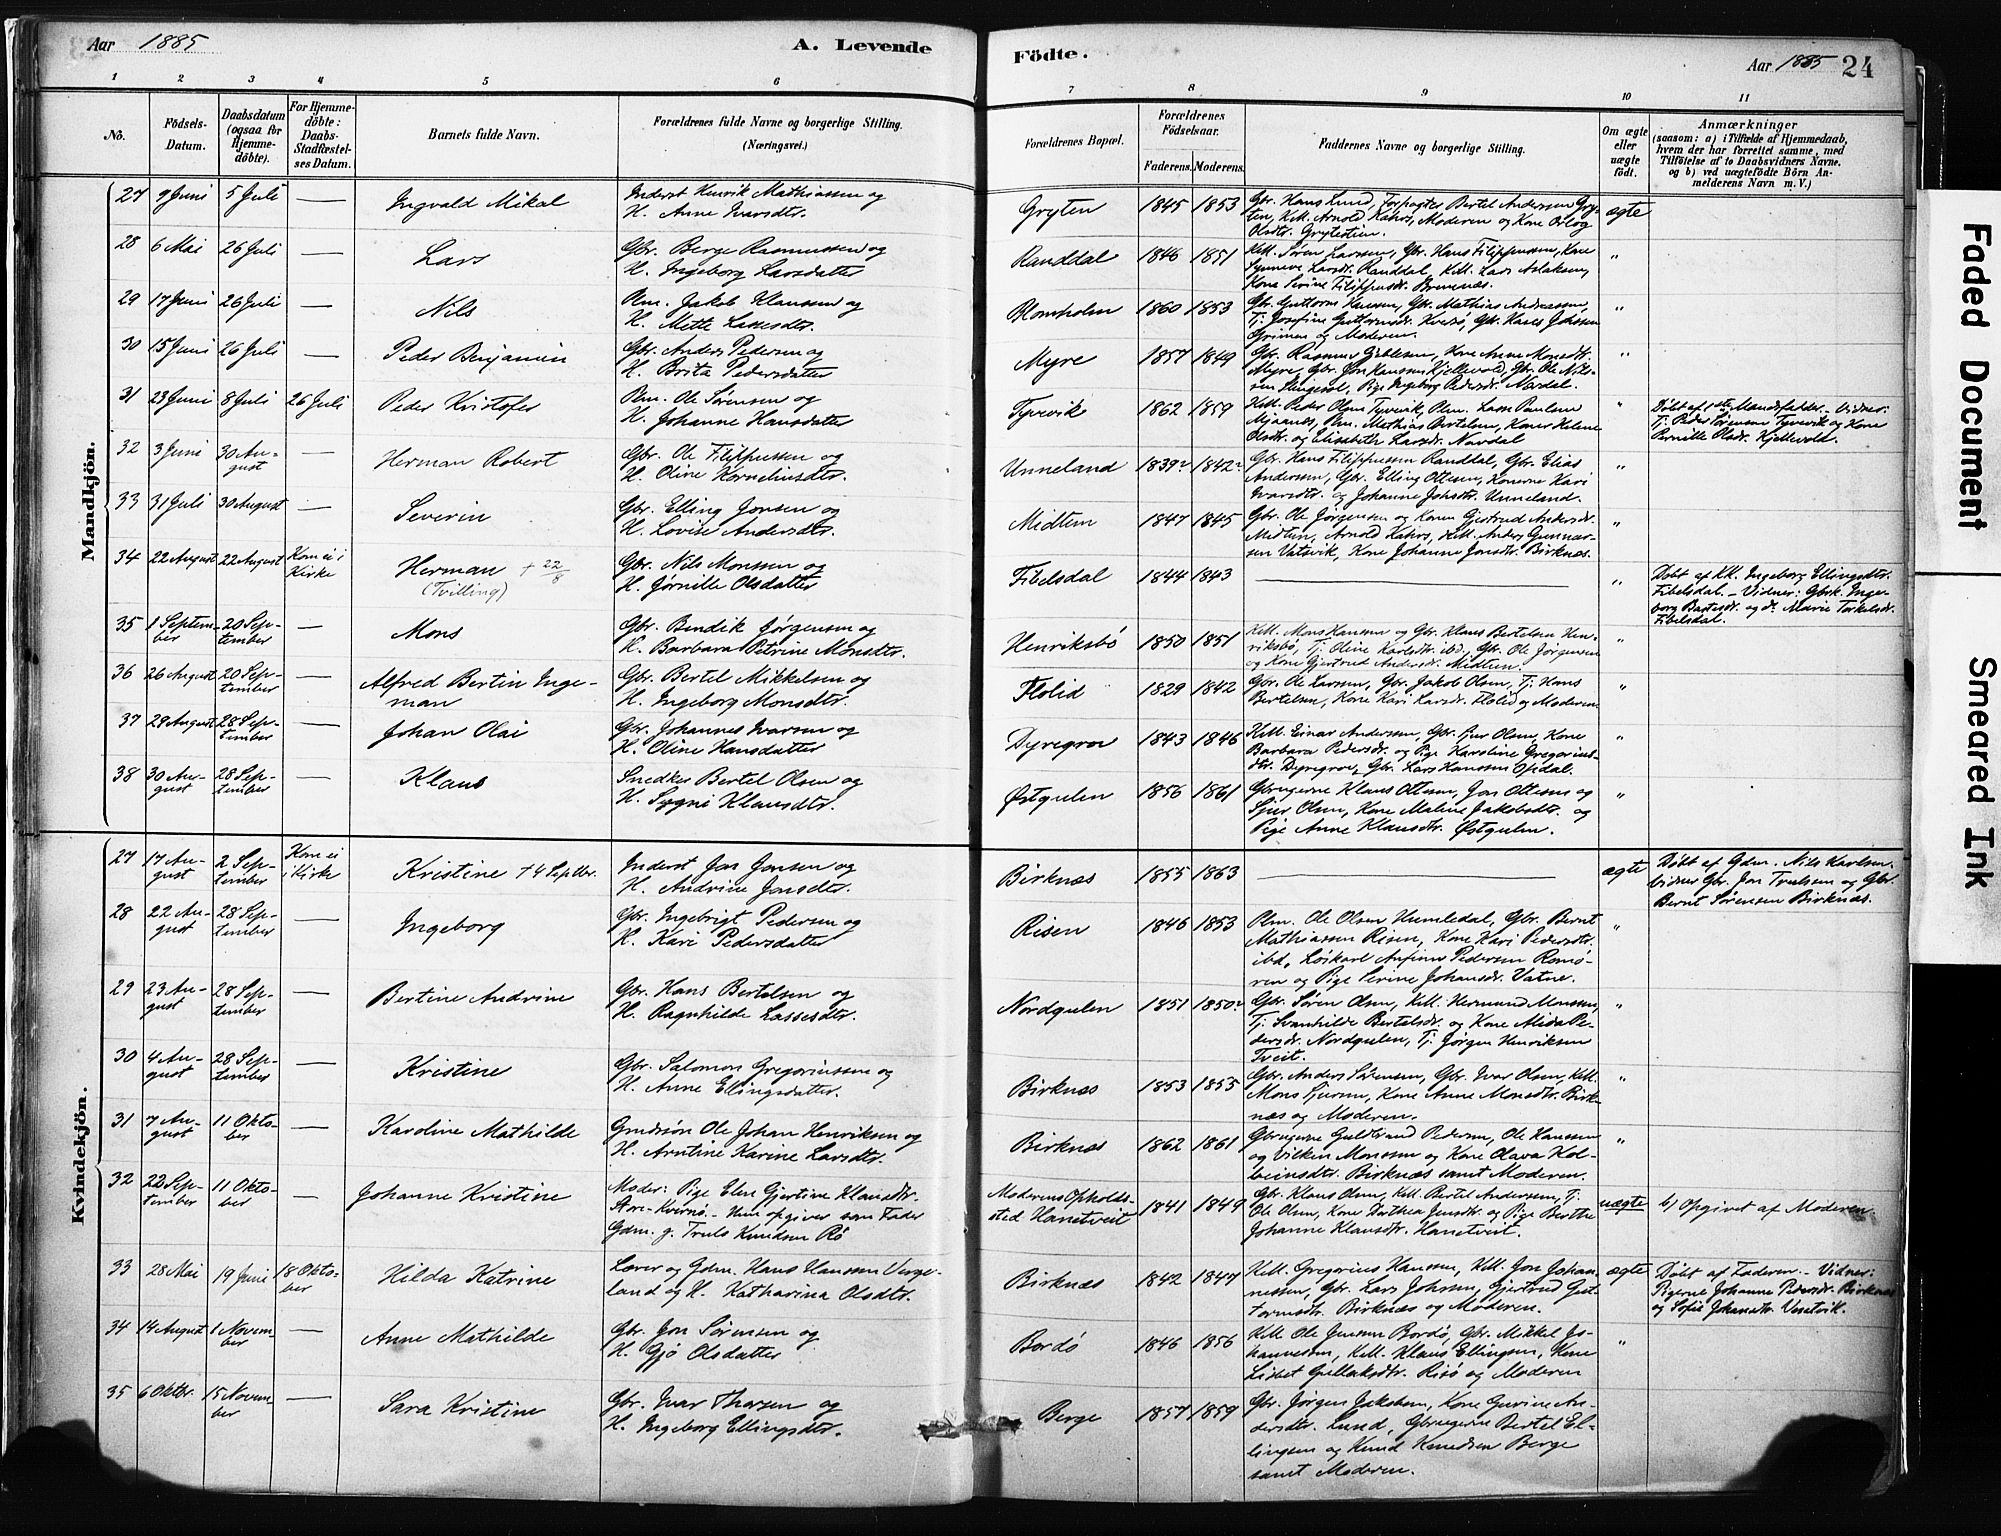 Aar 1885
A. Levende
Födte.
Aar 1885 24
1 2 3 4 5 6 7 8 9 10 11
No.
Födsels-
Datum.
Daabsdatum
(ogsaa for
Hjemme-
döbte).
For Hjemme-
döbte:
Daabs-
Stadfæstel-
ses Datum.
Barnets fulde Navn.
Forældrenes fulde Navne og borgerlige Stilling.
(Næringsvei.)
Forældrenes Bopæl.
Forældrenes
Födselsaar.
Faderens. Moderens.
Faddernes Navne og borgerlige Stilling.
Om ægte
eller
uægte
født.
Anmærkninger
(saasom: a) i Tilfælde af Hjemmedaab,
hvem der har forrettet samme, med
Tilföielse af to Daabsvidners Navne.
og b) ved uægtefödte Börn An-
melderens Navn m. V.)
Mandkjön.
27 9 Juni 5 Juli — Ingvald Mikal
Inderst Henrik Mathiassen og
H. Anne Ivarsdtr.
Gryten 1845 1853
Gbr. Hans Lund, Forpagter Bertel Anderssen Gry-
ten, Kell. Arnold Kahrs, Moderen og Kone
Olsdtr. Grytestien.
ægte
28 6 Mai 26 Juli — Lars
Gbr. Berge Rasmussen og
H. Ingeborg Larsdatter
Randdal 1846 1851
Kell. Søren Larssen, Gbr. Hans Filippussen, Kone
Synneve Larsdr. Randdal, Kell. Lars Aslaksen,
Kone Serine Filippusdr. Bremnæs.
"
29 17 Juni 26 Juli — Nils
Plm. Jakob Klaussen og
H. Mette Lassesdtr.
Blomholm 1860 1853
Gbr. Guttorm Hanssen, Gbr. Mathias Andreassen,
Tj. Josefine Guttormsdr. Kversö, Gbr. Hans Johssen
Grimen og Moderen.
"
30 15 Juni 26 Juli — Peder Benjamin
Gbr. Anders Pedersen og
H. Brita Pedersdatter
Myre 1857 1849
Gbr. Rasmus Giblesen, Kone Anne Monsdtr.
Myre, Gbr. Jon Hanssen Kjellevold, Gbr. Ole Nils-
sen Slengesol, Pige Ingeborg Pedersdr. Nordal.
"
31 23 Juni 8 Juli 26 Juli Peder Kristofer
Plm. Ole Sørensen og
H. Johanne Hansdatter
Tyvevik 1862 1859
Kell. Peder Olsen Tyvevik, Plm. Lasse Paulsen
Mjaanes, Plm. Mathias Bertelsen, Koner Helene
Olsdtr. og Elisabeth Larsdr. Nordal
"
Döbt af 1ste Mandsfadder. Vidner:
Tj. Peder Sörensen Tyvevik og Kone
Pernille Olsdr. Kjellevold.
32 3 Juni 30 Au-
gust — Herman Robert
Gbr. Ole Filippussen og
H. Oline Korneliusdtr.
Unneland 1839 1842
Gbr. Hans Filippussen Randdal, Gbr. Elias
Anderssen, Gbr. Elling Ottesen, Konerne Kari
Ivarsdtr. og Johanne Johsdtr. Unneland.
"
33 31 Juli 30 August — Severin
Gbr. Elling Jonsen og
H. Lovise Andersdtr.
Midtun 1847 1845
Gbr. Ole Jørgensen og Konen Gjertrud Andersdr.
Midtun, Arnold Kahrs, Kell. Anders Gunnar-
sen Vatsvik, Kone Johanne Jonsdtr. Birknæs.
"
34 22 August 22 August Kom ei i
Kirke
Herman + 22/8
(Tvilling)
Gbr. Nils Monssen og
H. Jörnille Olsdatter
Fibelsdal 1844 1843 —
"
Döbt af KK. Ingeborg Ellingsdtr.
Fibelsdal. – Vidner: Gbrk. Inge-
borg Bartesdr. og dr. Marie Torkelsdr.
Fibelsdal.
35 1 Septem-
ber 20 Sep-
tember — Mons
Gbr. Bendik Jörgensen og
H. Barbara Petrine Monsdtr.
Henriksbö 1850 1851
Kell. Mons Hanssen og Gbr. Klaus Bertelsen Hen-
riksbö, Tj. Oline Karlsdtr. ibd, Gbr. Ole Jörgensen
og Kone Gjertrud Andersdr. Midtun.
"
36 26 August 20 Sep-
tember — Alfred Bertin Inge-
man
Gbr. Bertel Mikkelsen og
H. Ingeborg Monsdtr.
Flolid 1829 1842
Gbr. Ole Larssen, Gbr. Jakob Olsen, Tj. Hans
Bertelsen, Kone Kari Larsdr. Flolid og Moderen.
"
37 29 August 28 Sep-
tember — Johan Olai
Gbr. Johannes Ivarsen og
H. Oline Hansdatter
Dyregrov 1843 1846
Kell. Einar Anderssen, Gbr. Gur Olsen, Kone
Barbara Pedersdr. og Pige Karoline Gregorius-
dtr. Dyregrov, Gbr. Lars Hanssen Opdal.
"
38 30 Au-
gust 28 Sep-
tember — Klaus
Snedker Bertel Olsen og
H. Sygni Klausdtr.
Östgulen 1856 1861
Gbrugerne Klaus Ottesen, Jon Ottesen og
Sjur Olsen, Kone Maline Jakobsdtr. og
Pige Anne Klausdtr. Östgulen.
"
Kvindekjön.
27 17 Au-
gust 2 Sep-
tember Kom ei
i Kirke
Kristine + 4 Septbr.
Inderst Jon Jonsen og
H. Andrine Jonsdtr.
Birknæs 1855 1863 —
ægte
Döbt af Gdm. Nils Karlsen.
Vidner Gbr. Jon Trulssen og Gbr.
Bernt Sörensen Birknæs.
28 22 Au-
gust 28 Sep-
tember — Ingeborg
Gbr. Ingebrigt Pedersen og
H. Kari Pedersdatter
Risen 1846 1853
Plm. Ole Olsen Humledal, Gbr. Bernt
Mathiassen Risen, Kone Kari Pedersdtr.
ibd, Löskarl Anfinn Pedersen Romö-
ren og Pige Serine Johansdr. Vatne.
"
29 23 Au-
gust 28 Sep-
tember — Bertine Andrine
Gbr. Hans Bertelsen og
H. Ragnhilde Lassesdtr.
Nordgulen 1851 1850
Gbr. Sören Olsen, Kell. Hermund Monssen,
Tj. Svanhilde Bertelsdr. og Kone Alida Pe-
dersdr. Nordgulen, Tj. Jörgen Henriksen
Tveit.
"
30 4 Au-
gust 28 Sep-
tember — Kristine
Gbr. Salomon Gregoriussen og
H. Anne Ellingsdatter.
Birknæs 1853 1853
Gbr. Anders Sörensen, Gbr. Ivar Olsen, Kell.
Mons Sjursen, Kone Anne Monsdtr. Birk-
næs og Moderen.
"
31 7 Au-
gust 11 Okto-
ber — Karoline Mathilde
Gmdsön Ole Johan Henriksen og
H. Arntine Karine Larsdtr.
Birknæs 1862 1861
Gbrugerne Guldbrand Pedersen, Ole Hanssen
og Vilken Monssen og Kone Olava Kol-
beinsdtr. Birknæs samt Moderen.
"
32 22 Sep-
tember 11 Okto-
ber — Johanne Kristine
Moder: Pige Elen Gjertine Klausdtr.
Store-Kvernö. – Hun opgiver som Fader
Gdm. g. Truls Knudsen Rö
Moderens Opholds-
sted Hanetveit 1841 1849
Gbr. Klaus Olsen, Kell. Bertel Anderssen, Tj.
Ole Olsen, Kone Dorthea Jensdtr. og Pige Berthe
Johanne Klausdtr. Hanetveit.
uægte
b) Opgivet af Moderen.
33 28 Mai 19 Juni 18 Okto-
ber Hilda Katrine
Lærer og Gdm. Hans Hanssen Verge-
land og H. Katharina Olsdtr.
Birknæs 1842 1847
Kell. Gregorius Hanssen, Kell. Jon Johan-
nessen, Gbr. Lars Johssen, Gjertrud Gut-
tormsdtr. Birknæs og Moderen.
ægte
Döbt af Faderen. – Vidner:
Pigerne Johanne Pedersdr. Birknæs
og Sofie Johansdtr. Unetvik.
34 14 August 1 Novem-
ber — Anne Mathilde
Gbr. Jon Sørensen og
H. Gjö Olsdatter
Bordö 1846 1856
Kell. Ole Jensen Bordö, Gbr. Mikkel Jo-
hannessen, Kell. Klaus Ellingsen, Kone
Lisbet Gullaksdtr. Risö og Moderen
"
35 6 Oktbr. 15 Novem-
ber — Sara Kristine
Gbr. Ivar Tharsen og
H. Ingeborg Ellingsdtr.
Berge 1857 1859
Gbr. Jörgen Jakobsen, Kone Gurine An-
dersdtr. Lund, Gbrugerne Bertel El-
lingsen og Knud Knudsen Berge
samt Moderen.
Faded Document
Smeared Ink